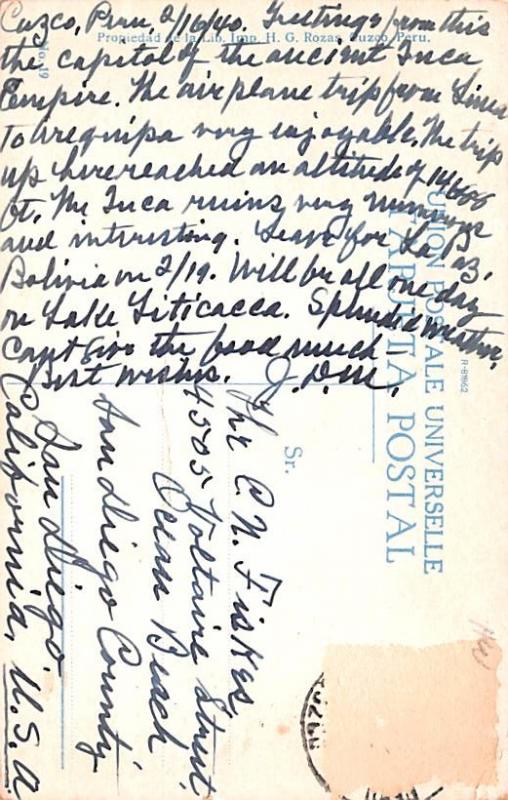 Cuzco, Peru, 2/16/40. Greetings from this
Propiedad de la Lib. Imp. H. G. Rozas, Cuzco, Peru.
No. 19
the capitol of the ancient Inca
Empire. The airplane trip from Lima
to Arequipa very enjoyable. The trip
up here reached an altitude of
ft. The Inca ruins very numerous
and interesting. Leave for La Paz,
Bolivia on 2/19. Will be all one day
on Lake Titicacca. Splendid weather,
Cant give the food much -
Best wishes. J.D.M.
UNION POSTALE UNIVERSELLE
TARJETA POSTAL
R-81862
Sr.
The C. N. Fiskes,
4505 Voltaire Street,
Ocean Beach
San Diego County,
San Diego,
California, U.S.A